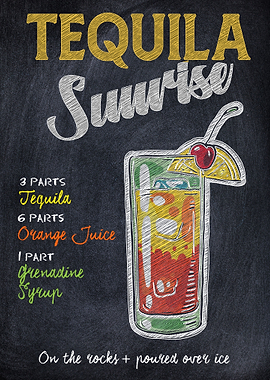 TEQUILA
Sunrise
3 PARTS
Tequila
6 PARTS
Orange Juice
1 PART
Grenadine
Syrup
On the rocks + poured over ice